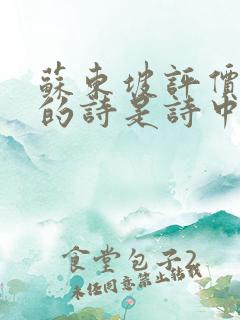 蘇東坡評價
的詩是詩中
食堂包子2
未任同意禁止轉載